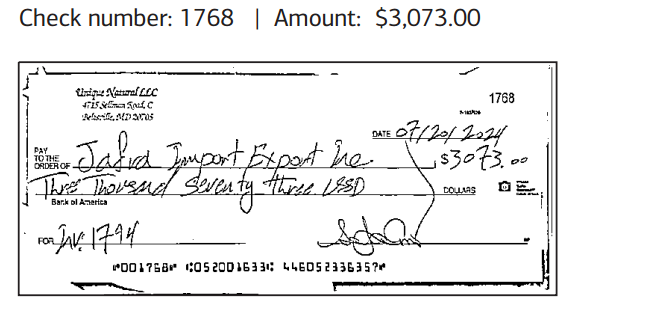 Check number: 1768 | Amount: $3,073.00
Unique Natural LLC
4715 Sellman Road, C
Beltsville, MD 20705
1768
DATE 07/20/2024
PAY TO THE ORDER OF Jafra Import Export Inc. $3073.00
Three Thousand Seventy three USD DOLLARS
Bank of America
FOR Inv: 1794
⑈001768⑈ ⑆052001633⑆ 446052336357⑈